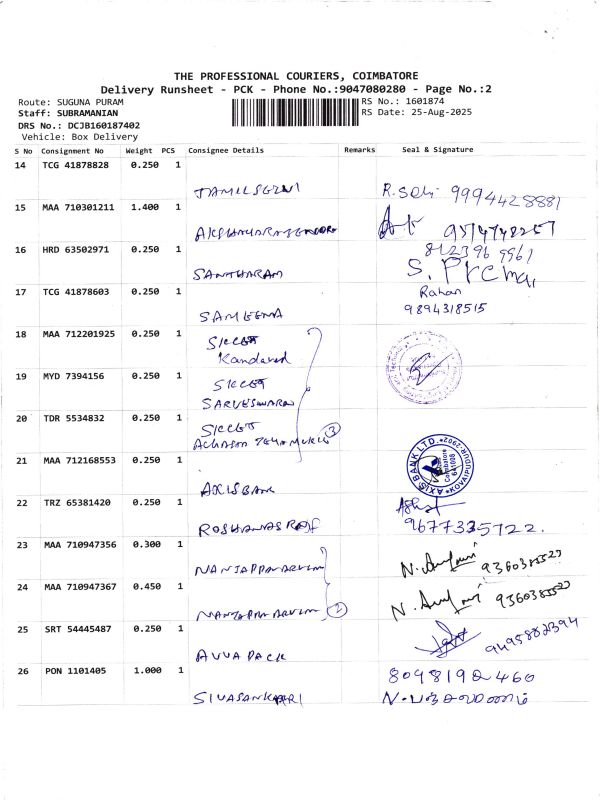 THE PROFESSIONAL COURIERS, COIMBATORE
Delivery Runsheet - PCK - Phone No.:9047080280 - Page No.:2
Route: SUGUNA PURAM
RS No.: 1601874
Staff: SUBRAMANIAN
RS Date: 25-Aug-2025
DRS No.: DCJB160187402
Vehicle: Box Delivery
S No Consignment No Weight PCS Consignee Details Remarks Seal & Signature
14 TCG 41878828 0.250 1
TAMILSELVI R. Selvi 9994428881
15 MAA 710301211 1.400 1
16 HRD 63502971 0.250 1
8123969961
SANTHARAM S. Prema
17 TCG 41878603 0.250 1
Rahan
SAMEENA 9894318515
18 MAA 712201925 0.250 1
SKCET
19 MYD 7394156 0.250 1
SKCET
SARVESWARAN
20 TDR 5534832 0.250 1
SKCET
3
21 MAA 712168553 0.250 1
AXIS BANK
AXIS BANK LTD. KOVAIPUDUR-2902 Coimbatore 641008
22 TRZ 65381420 0.250 1
ROSHANASRAF 9677335722.
23 MAA 710947356 0.300 1
NANJAPPA ARULM N. 9360385527
24 MAA 710947367 0.450 1
NANJAPPA ARULM 2 N. 9360385527
25 SRT 54445487 0.250 1
AVVA PACK 9495882394
26 PON 1101405 1.000 1
8098190460
SIVASANKARI